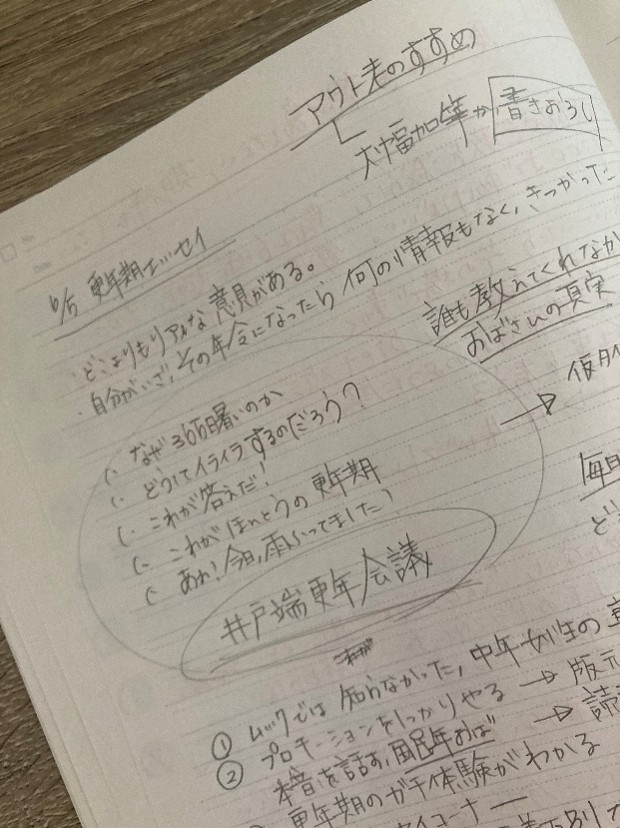 アウト老のすすめ
大幅加筆か書きおろし
6/5 更年期エッセイ
・どこよりもリアルな意見がある。
・自分がいざ、その年令になったら何の情報もなく、きつかった
誰も教えてくれなか
おばさんの真実
・なぜ365日暑いのか
・どうしてイライラするのだろう?
・これが答えだ!
・これがほんとうの更年期
・あれ!今日、雨ふってました?
井戸端更年会議
毎日
ど
① ムックでは知らなかった、中年女性の
② プロモーションをしっかりやる → 版元
本音を話す、更年おば → 読
更年期のガチ体験がわかる
コーナー